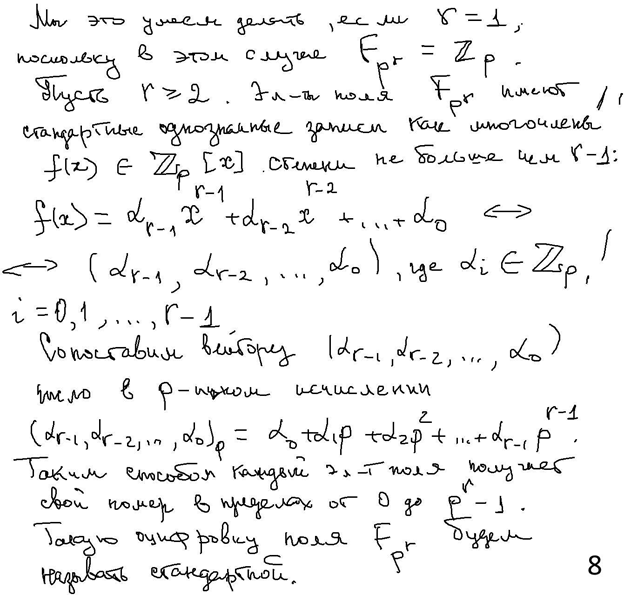 Мы это умеем делать, если r = 1,
поскольку в этом случае F_{p^r} = ℤ_p.
Пусть r ⩾ 2. Эл-ты поля F_{p^r} имеют
стандартные однозначные записи как многочлены
f(x) ∈ ℤ_p [x] степени не больше чем r-1:
f(x) = α_{r-1} x^{r-1} + α_{r-2} x^{r-2} + ... + α_0 ⟷
⟷ (α_{r-1}, α_{r-2}, ..., α_0), где α_i ∈ ℤ_p,
i = 0, 1, ..., r-1
Сопоставим вектору (α_{r-1}, α_{r-2}, ..., α_0)
число в p-ичном исчислении
(α_{r-1}, α_{r-2}, ..., α_0)_p = α_0 + α_1 p + α_2 p^2 + ... + α_{r-1} p^{r-1}.
Таким способом каждый эл-т поля получает
свой номер в пределах от 0 до p^r - 1.
Такую оцифровку поля F_{p^r} будем
называть стандартной.
8